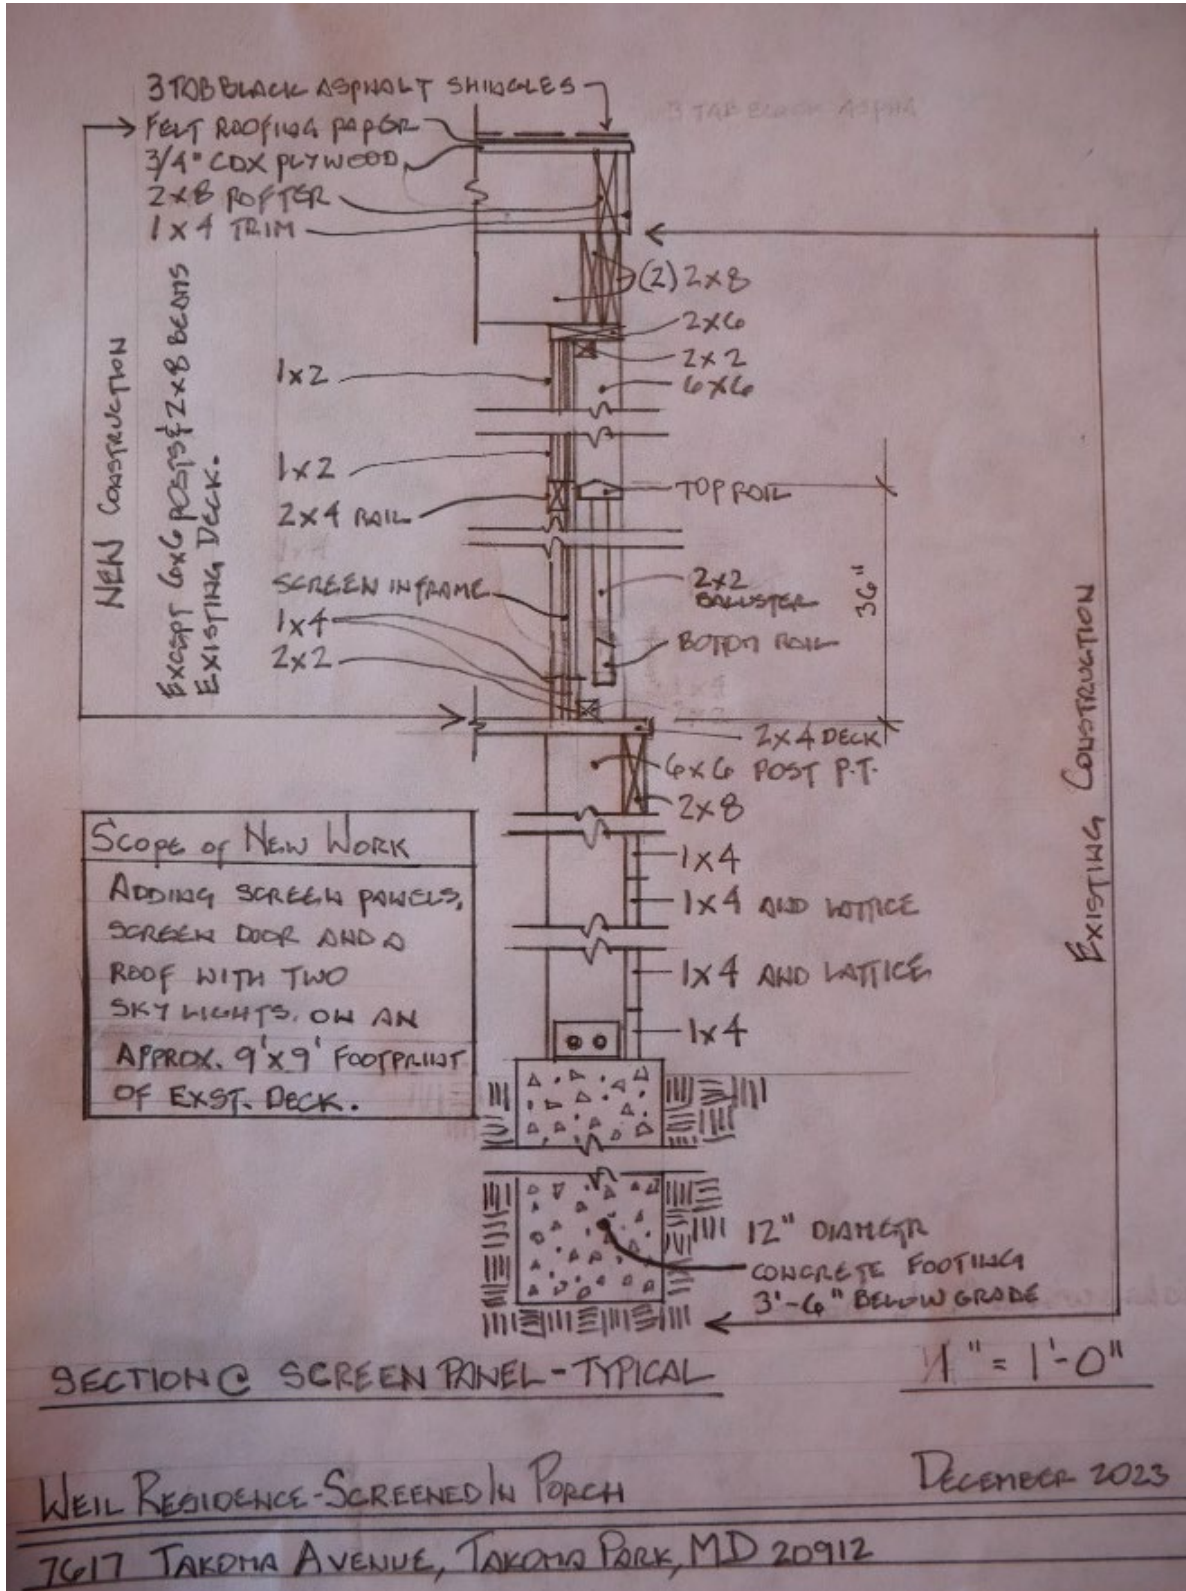 3 TAB BLACK ASPHALT SHINGLES
FELT ROOFING PAPER
3/4" CDX PLYWOOD
2x8 ROFTER
1x4 TRIM
3 TAB BLACK ASPHA
(2) 2x8
2x6
2x2
6x6
1x2
1x2
2x4 RAIL
TOP RAIL
SCREEN IN FRAME
1x4
2x2
2x2
BALUSTER
BOTTOM RAIL
36"
NEW CONSTRUCTION
EXCEPT 6x6 POSTS & 2x8 BEAMS
EXISTING DECK.
2x4 DECK
6x6 POST P.T.
2x8
1x4
1x4 AND LATTICE
1x4 AND LATTICE
1x4
EXISTING CONSTRUCTION
SCOPE OF NEW WORK
ADDING SCREEN PANELS,
SCREEN DOOR AND A
ROOF WITH TWO
SKY LIGHTS. ON AN
APPROX. 9'x9' FOOTPRINT
OF EXST. DECK.
12" DIAMETR
CONCRETE FOOTING
3'-6" BELOW GRADE
SECTION @ SCREEN PANEL - TYPICAL
1" = 1'-0"
WEIL RESIDENCE - SCREENED IN PORCH
DECEMBER 2023
7617 TAKOMA AVENUE, TAKOMA PARK, MD 20912